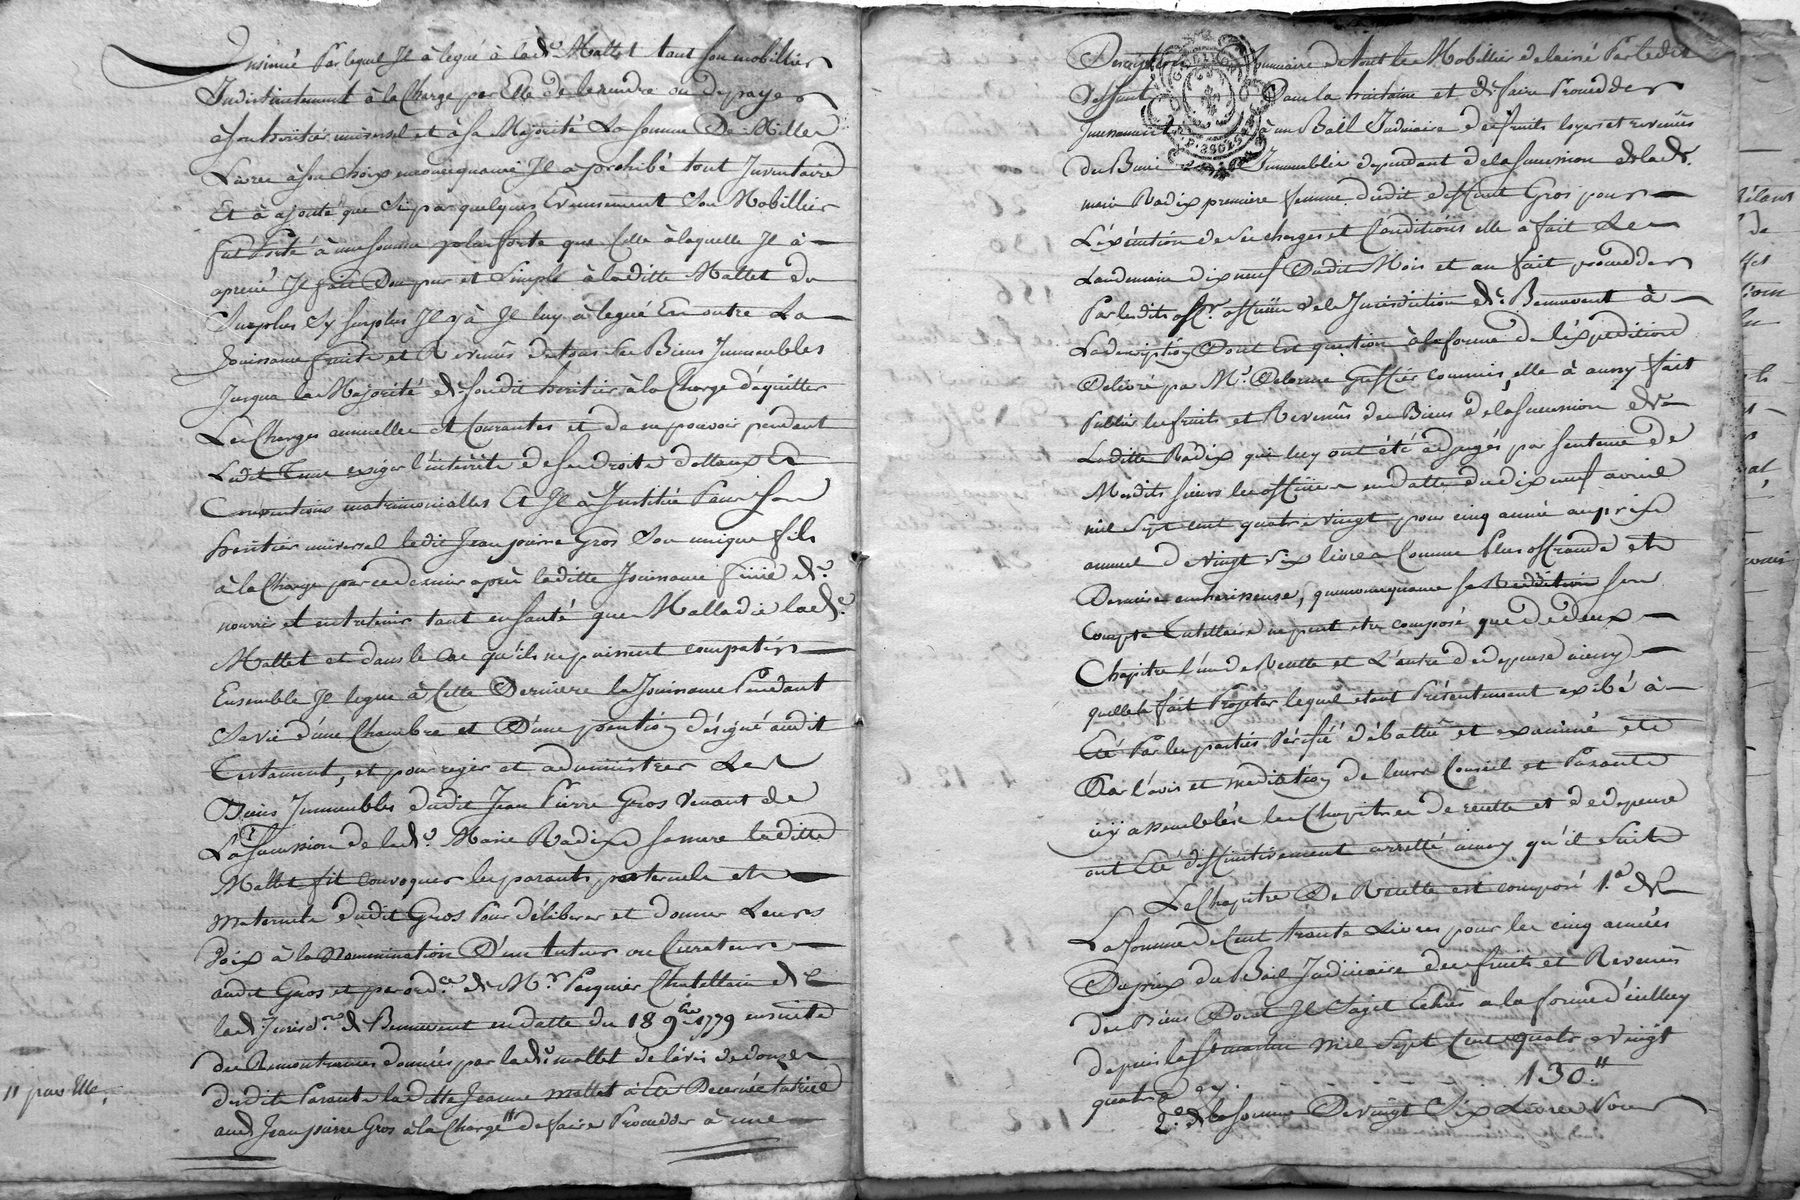 Insinué Par lequel Il à legué à lad.e Mallet tout son mobillier
Indistinctement à la Charge par Elle de le rendre ou de payer
à son heritier universel et à sa Majorité La somme De Mille
Livres à son choix en consequance Il a prohibé tout Inventaire
Et à ajouté que Si par quelques Evenement Son Mobillier
fut Porté à une somme plus forte que Celle à laquelle Il à
aprecié Il fait Don pur et Simple à laditte Mallet du
Surplus Sy surplus Il y à Il luy a legué En outre La
Jouissance fruits et Revenûs de tous Ses Biens Immeubles
Jusqua la Majorité de sondit heritier à la Charge d'aquitter
Les Charges annuelles et Courantes et de ne pouvoir pendant
Ledit Tems exiger l'intérêts de ses droits dottaux Et
Conventions matrimonialles Et Il à Institué Pour son
heritier universel ledit Jean pierre Gros Son unique fils
à la Charge par ce dernier après laditte Jouissance finie de
nourrir et entretenir tant en santé que Malladie lad.e
Mallet et dans le Cas qu'ils ne puissent compatir
Ensemble Il legue à Cette Derniere la Jouissance Pendant
Sa vie d'une Chambre et D'une pention désigné audit
Testament, et pour regir et administrer Les
Biens Immeubles dudit Jean Pierre Gros Venant de
La Sucession de lad.e Marie Radix sa mere laditte
Mallet fit convoquer les parants paternels et
maternels dudit Gros Pour déliberer et donner Leurs
Voix à la Nommination D'un tuteur ou Curateur
audit Gros et par ord.ce de M.r Pasquier Chatellain de
lad. Jurisd.on de Bennevent en datte du 18 9bre 1779 ensuite
des Remontrances données par lad.e mallet de l'avis de douze
desdits Parants laditte Jeanne mallet à Eté Decernée tutrice
aud. Jean pierre Gros à la Charge " de faire Proceder à une
" par Elle,
Description Sommaire de tout le Mobillier delaissé Par ledit
Deffunt Dans la huitaine et de faire Proceder
Incessament à un Bail Judiciaire des fruits loyers et revenûs
des Biens Immeubles dependant de la sucession de lad.e
marie Radix premiere femme dudit deffunt Gros pour
L'exécution de Ses charges et Conditions elle à fait Le
Landemain dix neuf Dudit Mois et an fait proceder
Par lesdits officiers de la Jurisdiction de Bennevent à
La description Dont Est question à la forme de l'éxpédition
Delivré par M.e Delorme Greffier commis, elle à aussy fait
Publier les fruits et Revenûs des Biens de la sucession de
Laditte Radix qui luy ont été adjugés par sentence de
Mesdits sieurs les officiers en datte du dix neuf avril
mil Sept cent quatre Vingt pour cinq année au prix
annuel de Vingt Six livres Comme Plus offrande et
Derniere encherisseuse, en consequance sa Reddition son
Compte Tutellaire ne peut etre composé que de deux
Chapitre l'un de Recette et L'autre de depense ainsy
quelle la fait Projeter lequel etant Présentement exibé à
Eté Par les parties Vérifié débattû et examiné et
Par l'avis et meditation de leurs Conseil et Parants
icy assemblés les Chapitres de recette et de depense
ont Eté deffinitivement arretté ainsy qu'il Suit
Le Chapitre De Recette est composé 1.° de
La somme de Cent trante Livres pour les cinq années
Du prix du Bail Judiciaire des fruits et Revenûs
des Biens Dont Il Sagit Echûs a la forme d'icelluy
depuis la S.t martin Mil Sept Cent quatre Vingt
quatre cy 130."
2.° de la somme De Vingt Six Livres Pour